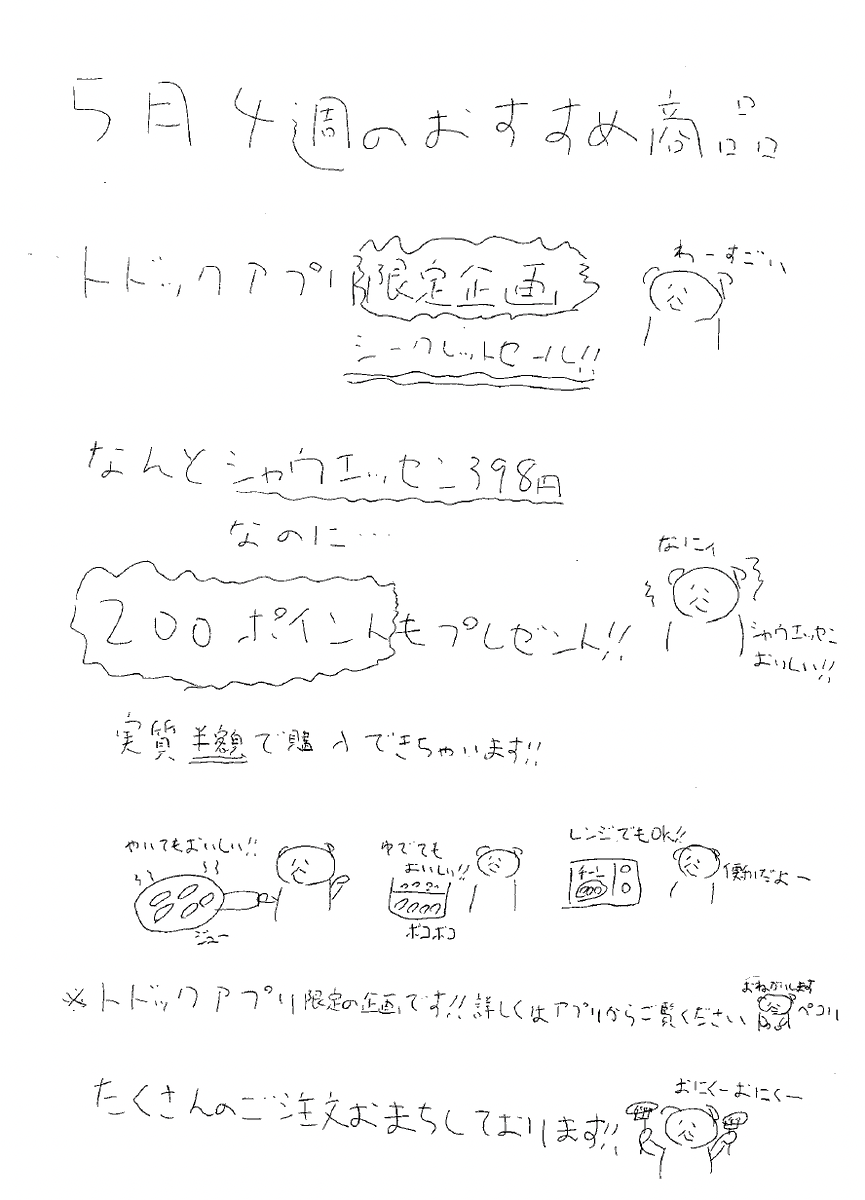 5月4週のおすすめ商品
トドックアプリ限定企画
わーすごい
シークレットセール!!
なんとシャウエッセン398円
なのに…
なにィ
200ポイントもプレゼント!!
シャウエッセン
おいしい!!
実質半額で購入できちゃいます!!
やいてもおいしい!!
ジュー
ゆでても
おいしい!!
ボコボコ
レンジでもOK!!
チーン
便利だよー
※トドックアプリ限定の企画です!!詳しくはアプリからご覧ください
おねがいします
ペコリ
たくさんのご注文おまちしております!!
おにくーおにくー